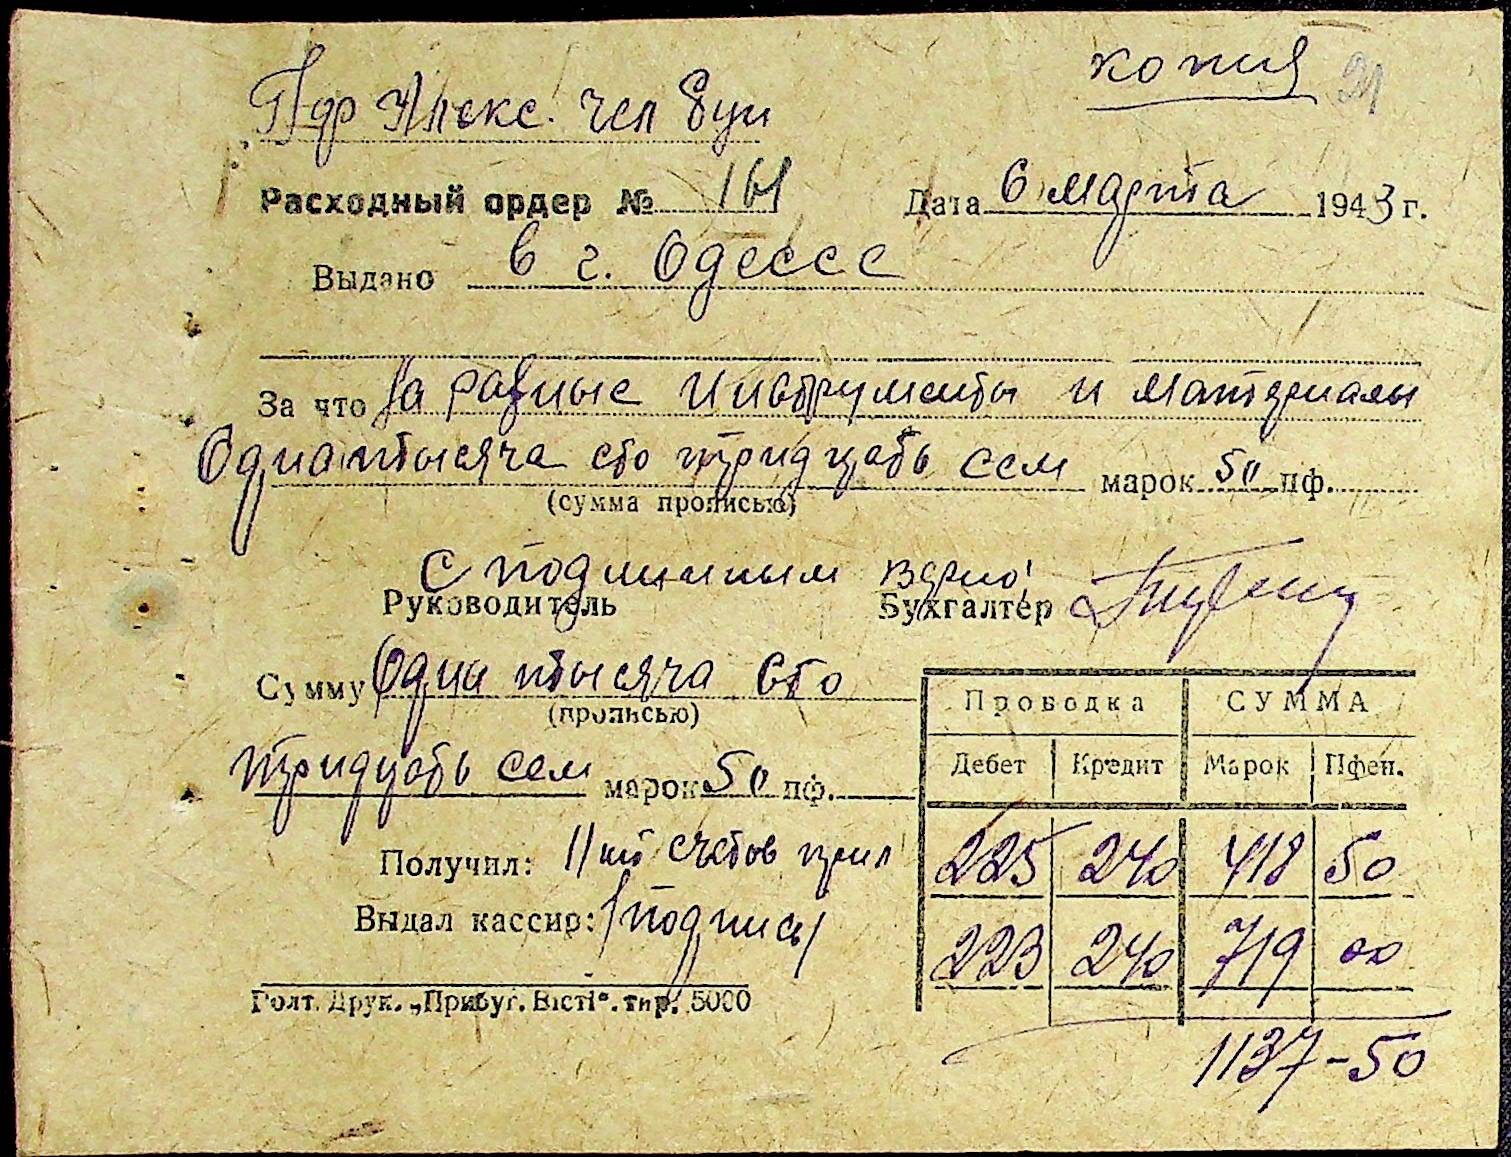 копия 21
Пдр Алекс. чел
Расходный ордер № 161 Дата 6 марта 1943 г.
Выдано в г. Одессе
За что За разные инструменты и материалы
Одна тысяча сто тридцать сем марок 50 пф.
(сумма прописью)
С подлинным верно:
Руководитель Бухгалтер
Сумму Одна тысяча сто
(прописью)
тридцать сем марок 50 пф.
Проводка СУММА
Дебет Кредит Марок Пфен.
225 240 418 50
223 240 719 00
1137-50
Получил: 11 счетов прил
Выдал кассир: /подпись/
Голт. Друк. „Прибуг. Вісті“. тир. 5000